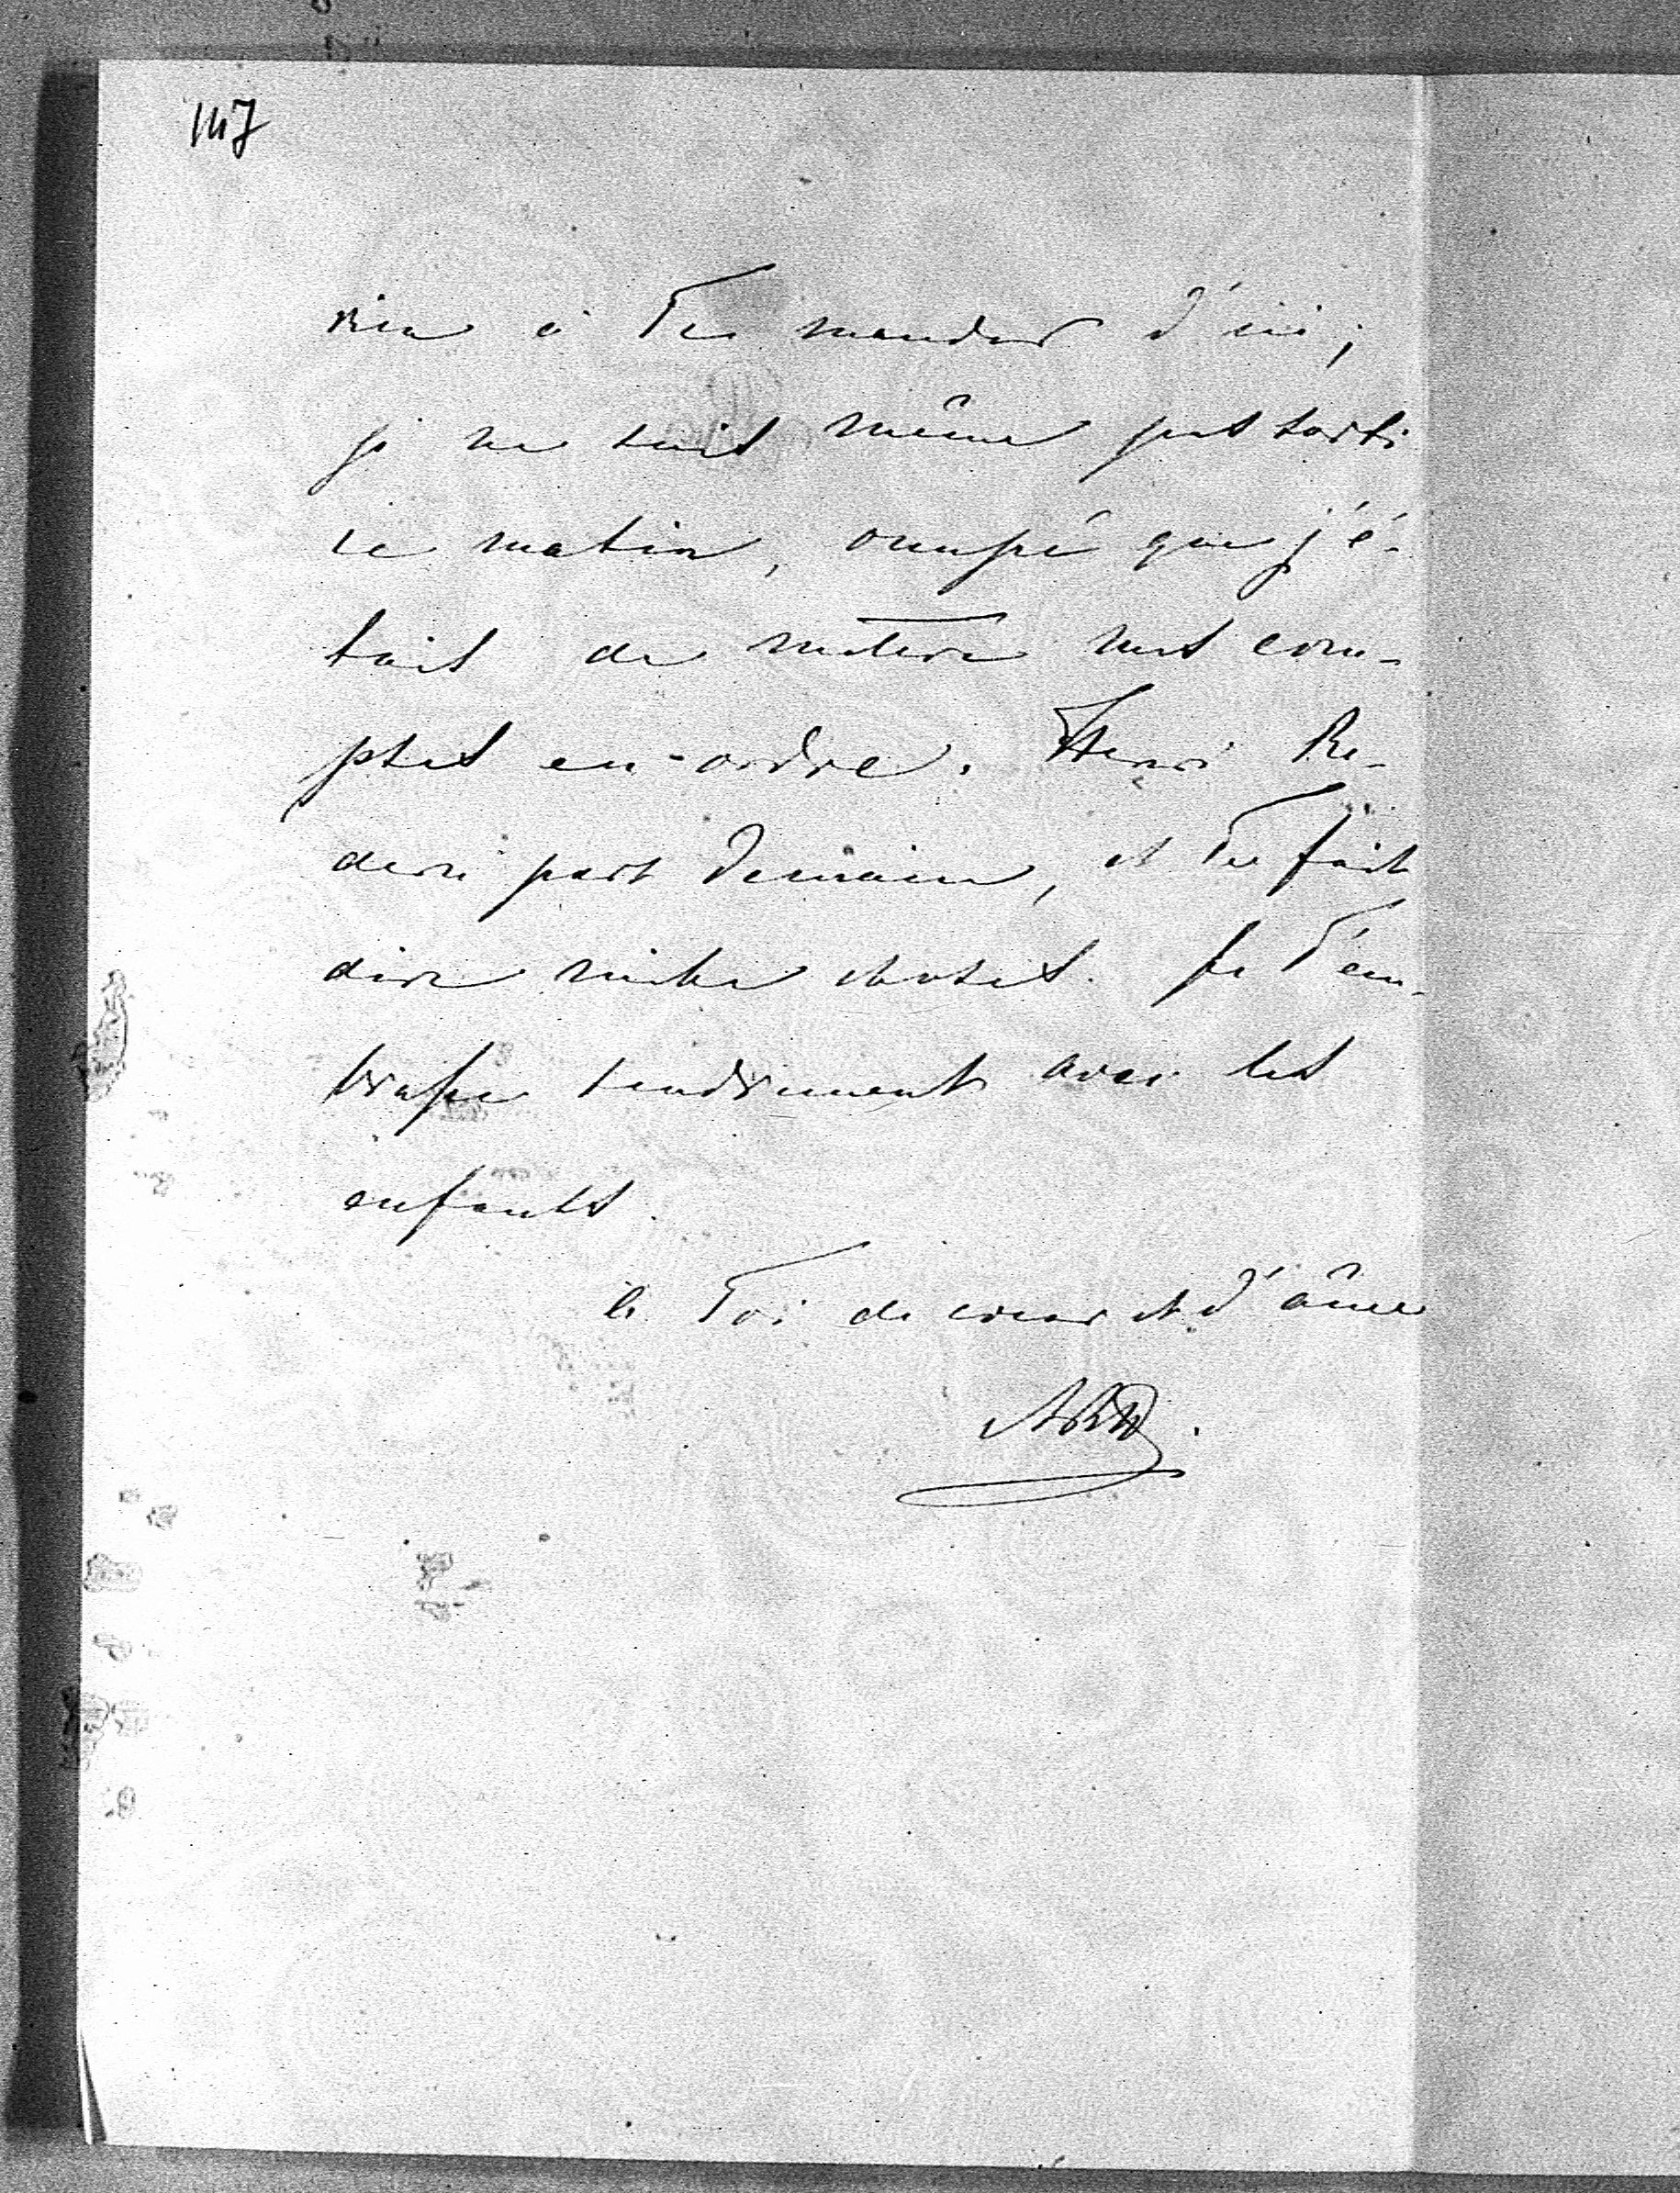 147
rien à Te mander d'ici;
je ne suis même pas sorti
ce matin, occupé que j'é-
tais de mettre mes com-
ptes en-ordre. Henri Re-
dern part demain, et Te fait
dire mille choses. Je T'em-
brasse tendrement avec les
enfants.
à Toi de cœur et d'âme